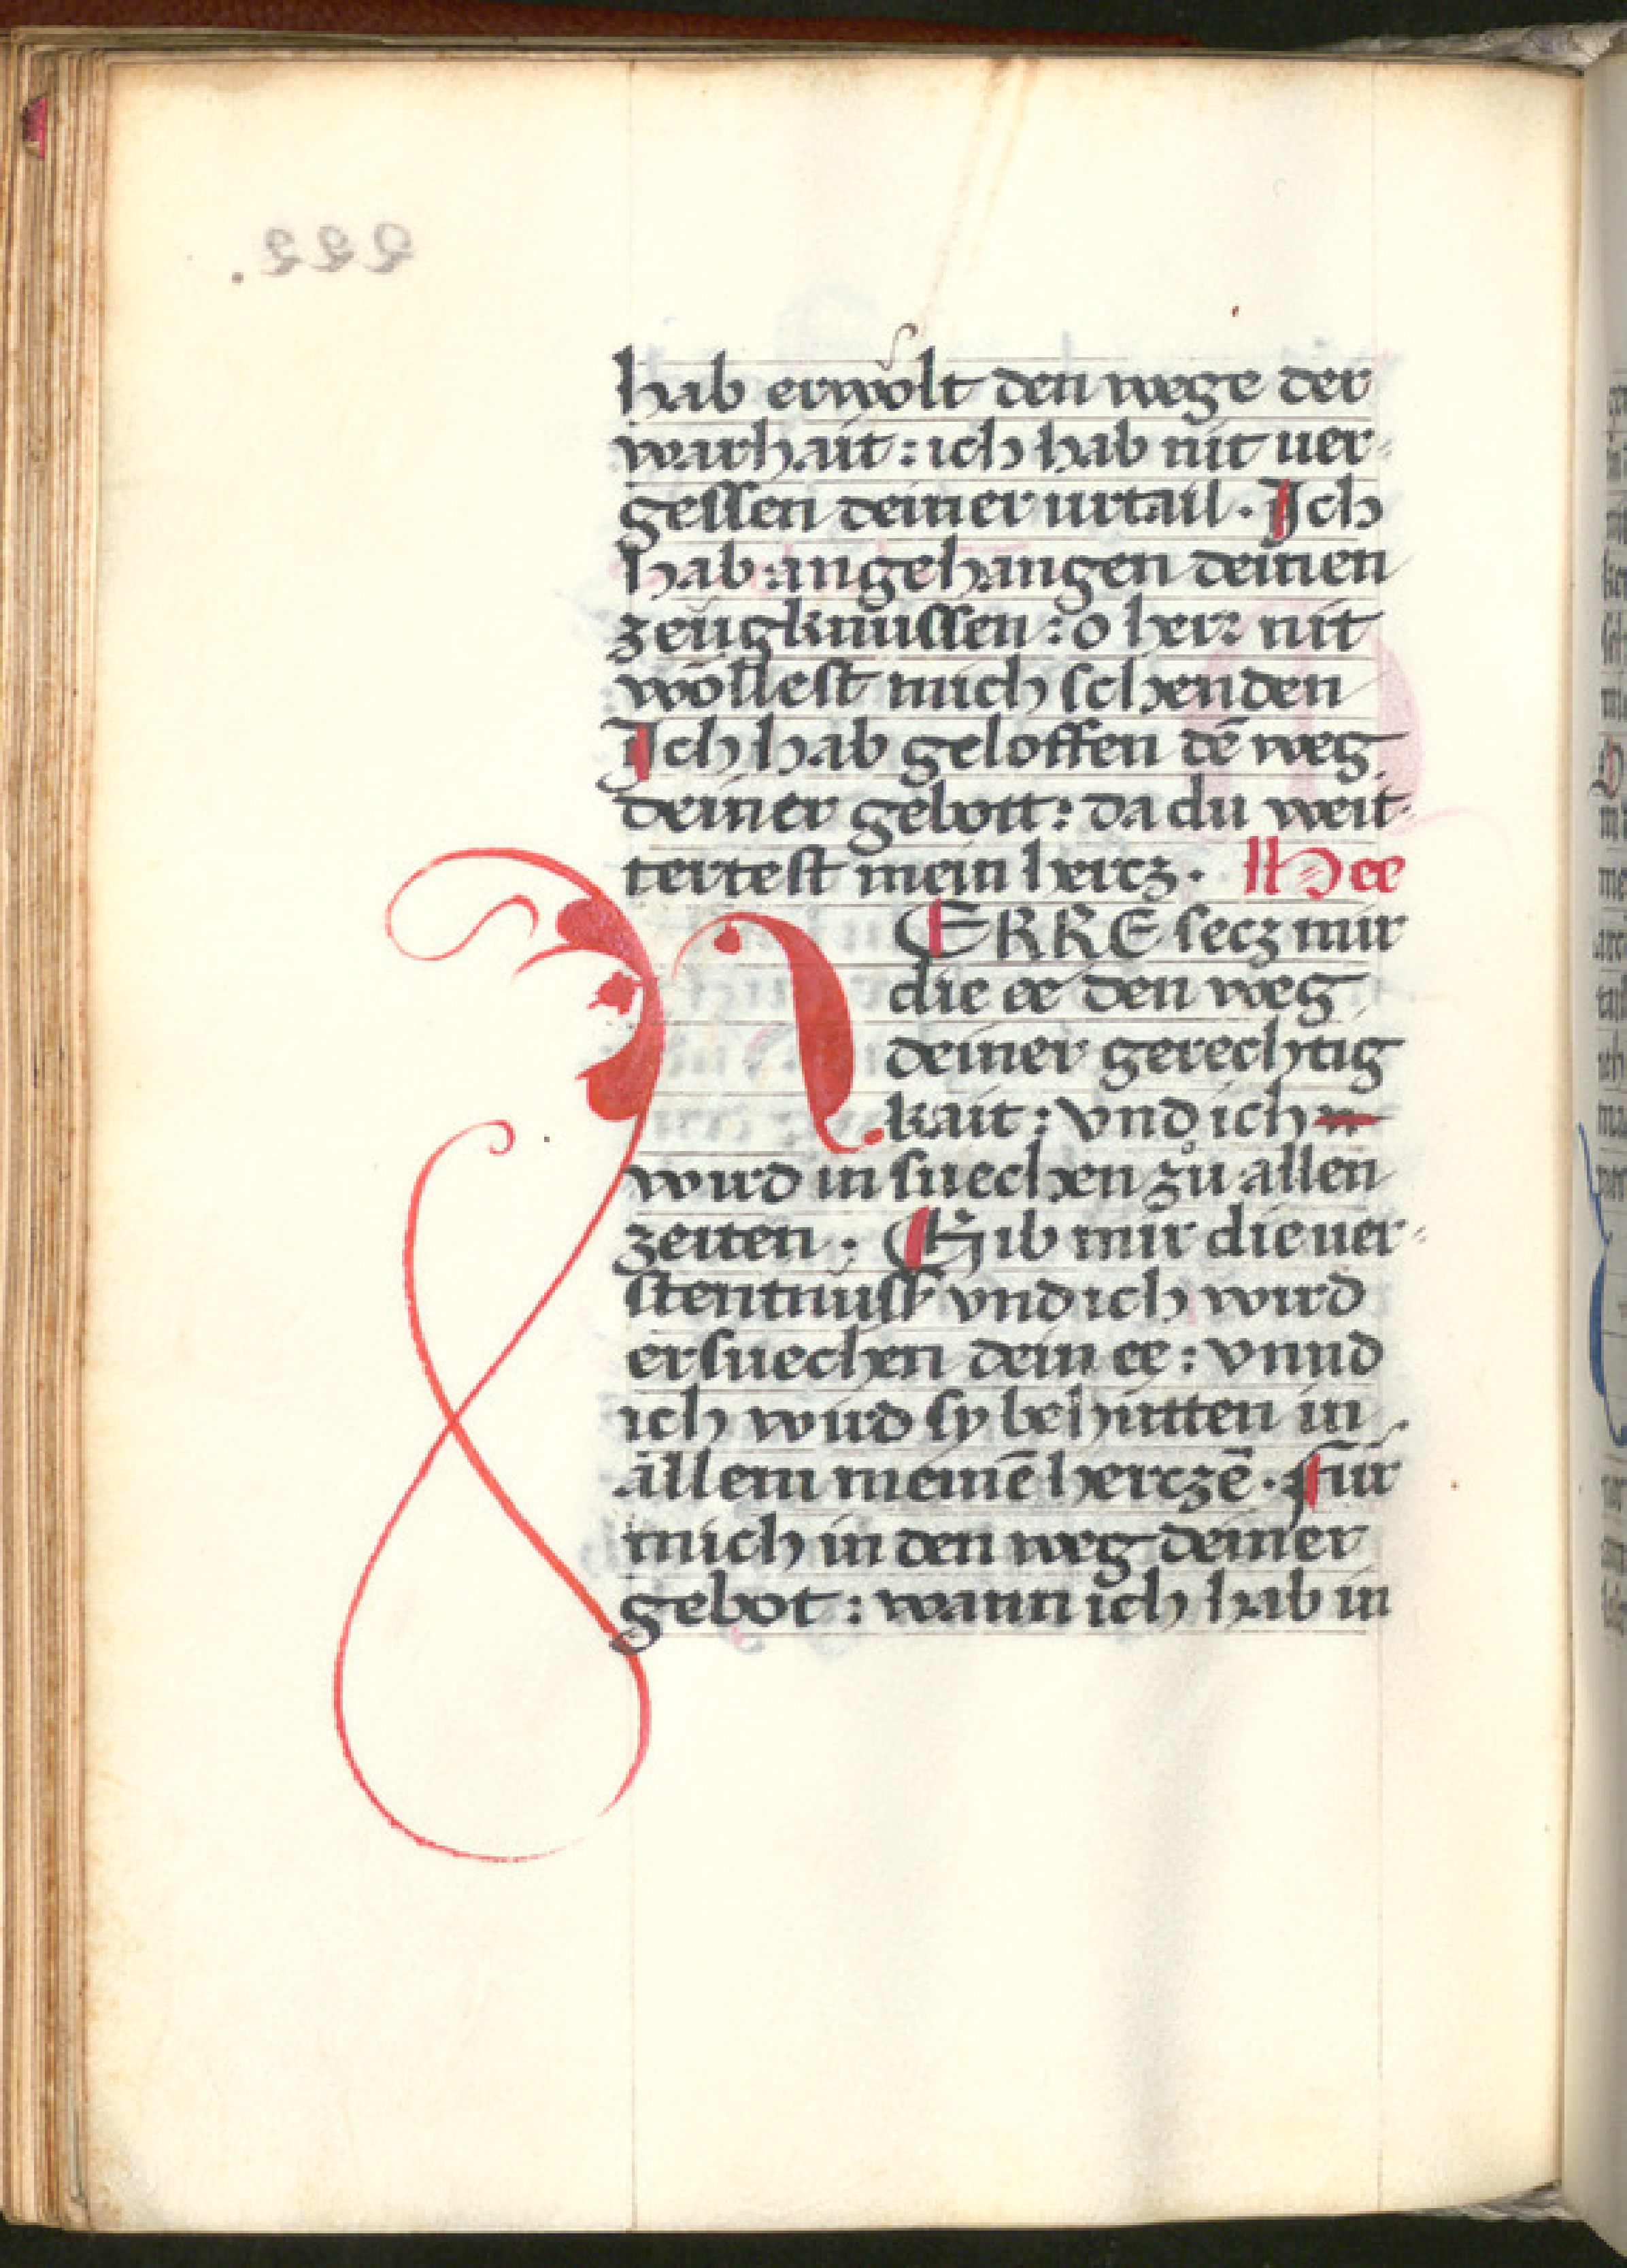 hab erwőlt den wege der
warhait : ich hab nit uer-
gessen deiner urtail · Jch
hab angehangen deinen
zeŭgknussen : o herr nit
wöllest mich schenden
Jch hab geloffen dē weg
deiner gebott : da du weit-
tertest mein hercz · Hee
HERRE secz mir
die ee den weg
deiner gerechtig
kait : vnd ich
wird in suechen zů allen
zeiten · Gib mir die uer-
stentnŭss vnd ich wird
ersuechen dein ee : vnnd
ich wird sy behütten in
allem meinē herczē · Für
mich in den weg deiner
gebot : wann ich hab in